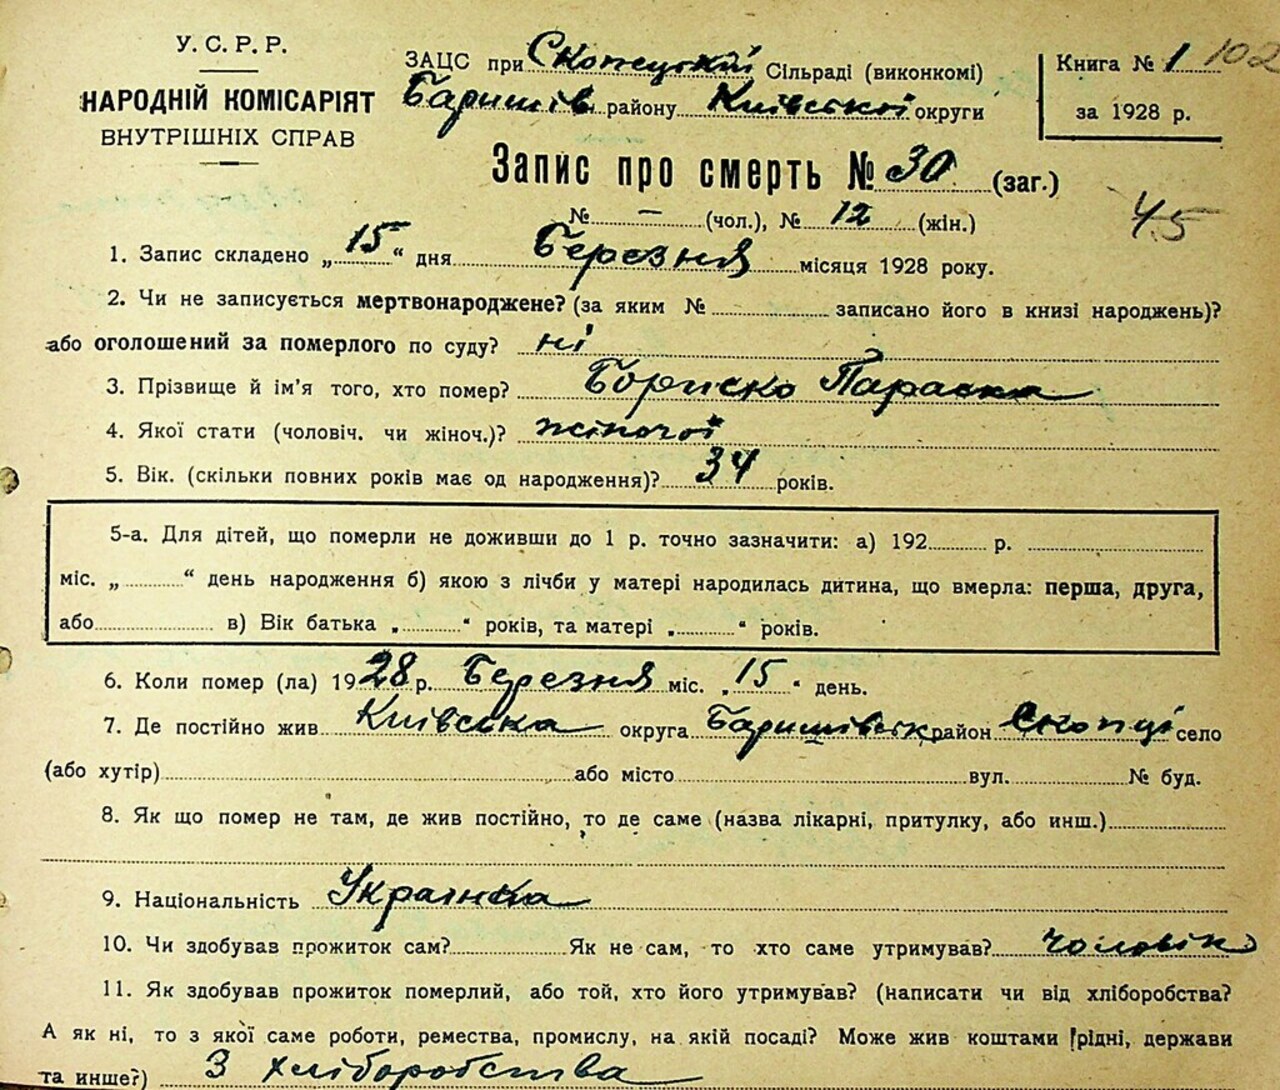 У. С. Р. Р.
НАРОДНІЙ КОМІСАРІЯТ
ВНУТРІШНІХ СПРАВ
ЗАЦС при Скопецькій Сільраді (виконкомі)
Баришів району Київської округи
Книга № 1 102
за 1928 р.
Запис про смерть № 30 (заг.)
№ — (чол.), № 12 (жін.)
45
1. Запис складено „ 15 “ дня Березня місяця 1928 року.
2. Чи не записується мертвонароджене? (за яким № записано його в книзі народжень)?
або оголошений за померлого по суду? ні
3. Прізвище й ім’я того, хто помер? Бориско Параска
4. Якої стати (чоловіч. чи жіноч.)? жіночої
5. Вік. (скільки повних років має од народження)? 34 років.
5-а. Для дітей, що померли не доживши до 1 р. точно зазначити: а) 192 р.
міс. „ “ день народження б) якою з лічби у матері народилась дитина, що вмерла: перша, друга,
або в) Вік батька „ “ років, та матері „ “ років.
6. Коли помер (ла) 1928 р. Березня міс. „ 15 “ день.
7. Де постійно жив Київська округа Баришівськ район Скопці село
(або хутір) або місто вул. № буд.
8. Як що помер не там, де жив постійно, то де саме (назва лікарні, притулку, або инш.)
9. Національність Українка
10. Чи здобував прожиток сам? Як не сам, то хто саме утримував? чоловік
11. Як здобував прожиток померлий, або той, хто його утримував? (написати чи від хліборобства?
А як ні, то з якої саме роботи, ремества, промислу, на якій посаді? Може жив коштами рідні, держави
та инше?) З хліборобства